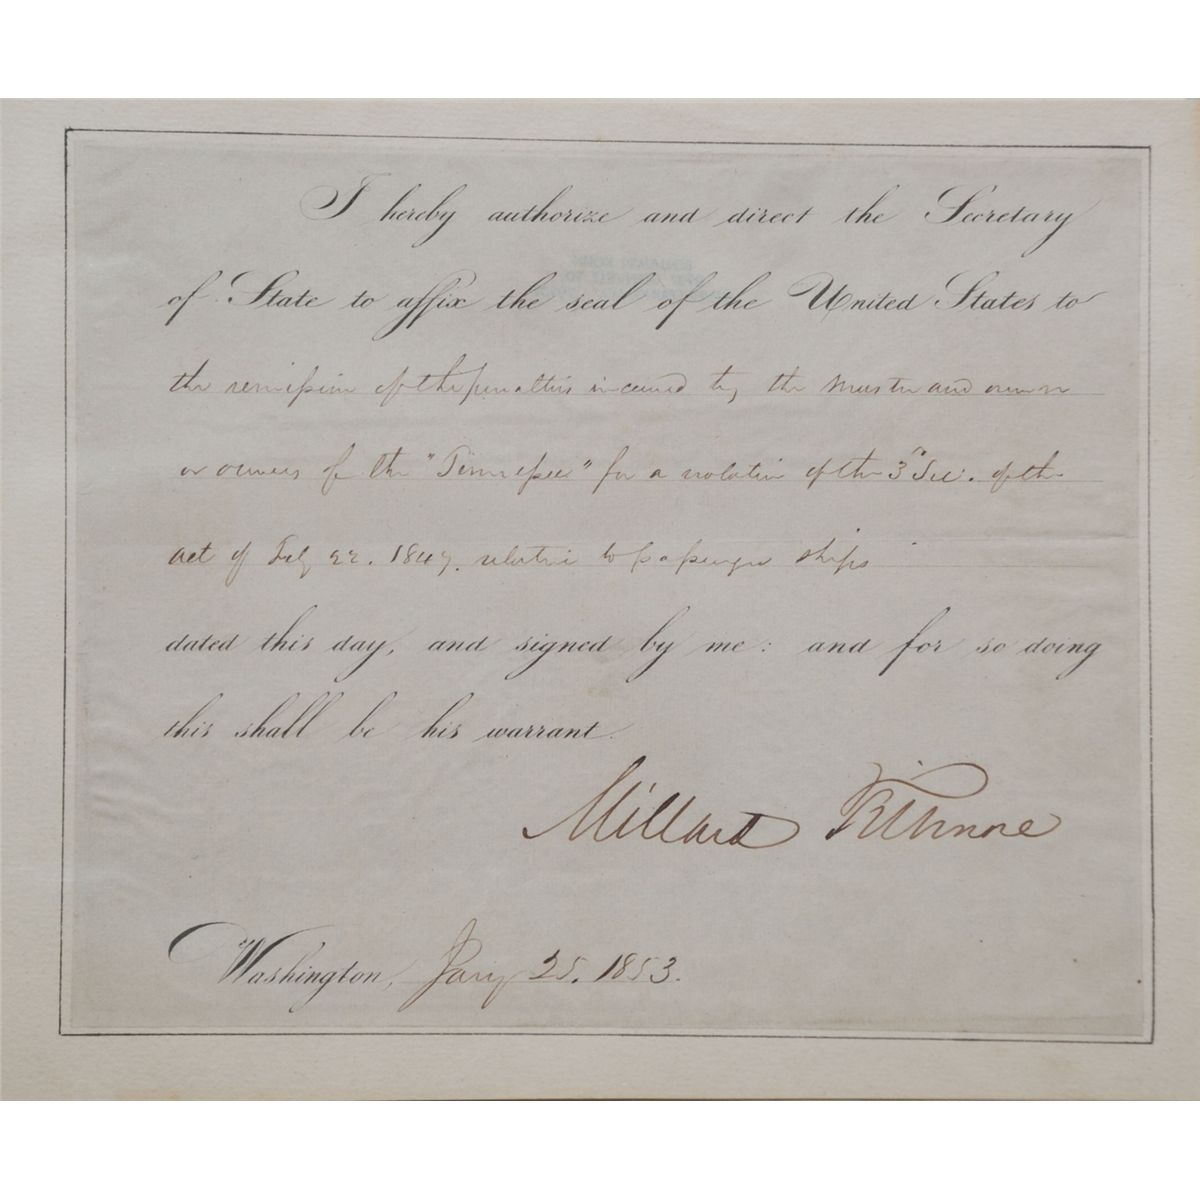 I hereby authorize and direct the Secretary
of State to affix the seal of the United States to
the remission of the penalties incurred by the Master and owner
or owners of the "Tennessee" for a violation of the 3d Sec. of the
act of Feby 22. 1847. relative to passenger ships
dated this day, and signed by me: and for so doing
this shall be his warrant.
Millard Fillmore
Washington, Jany 25. 1853.